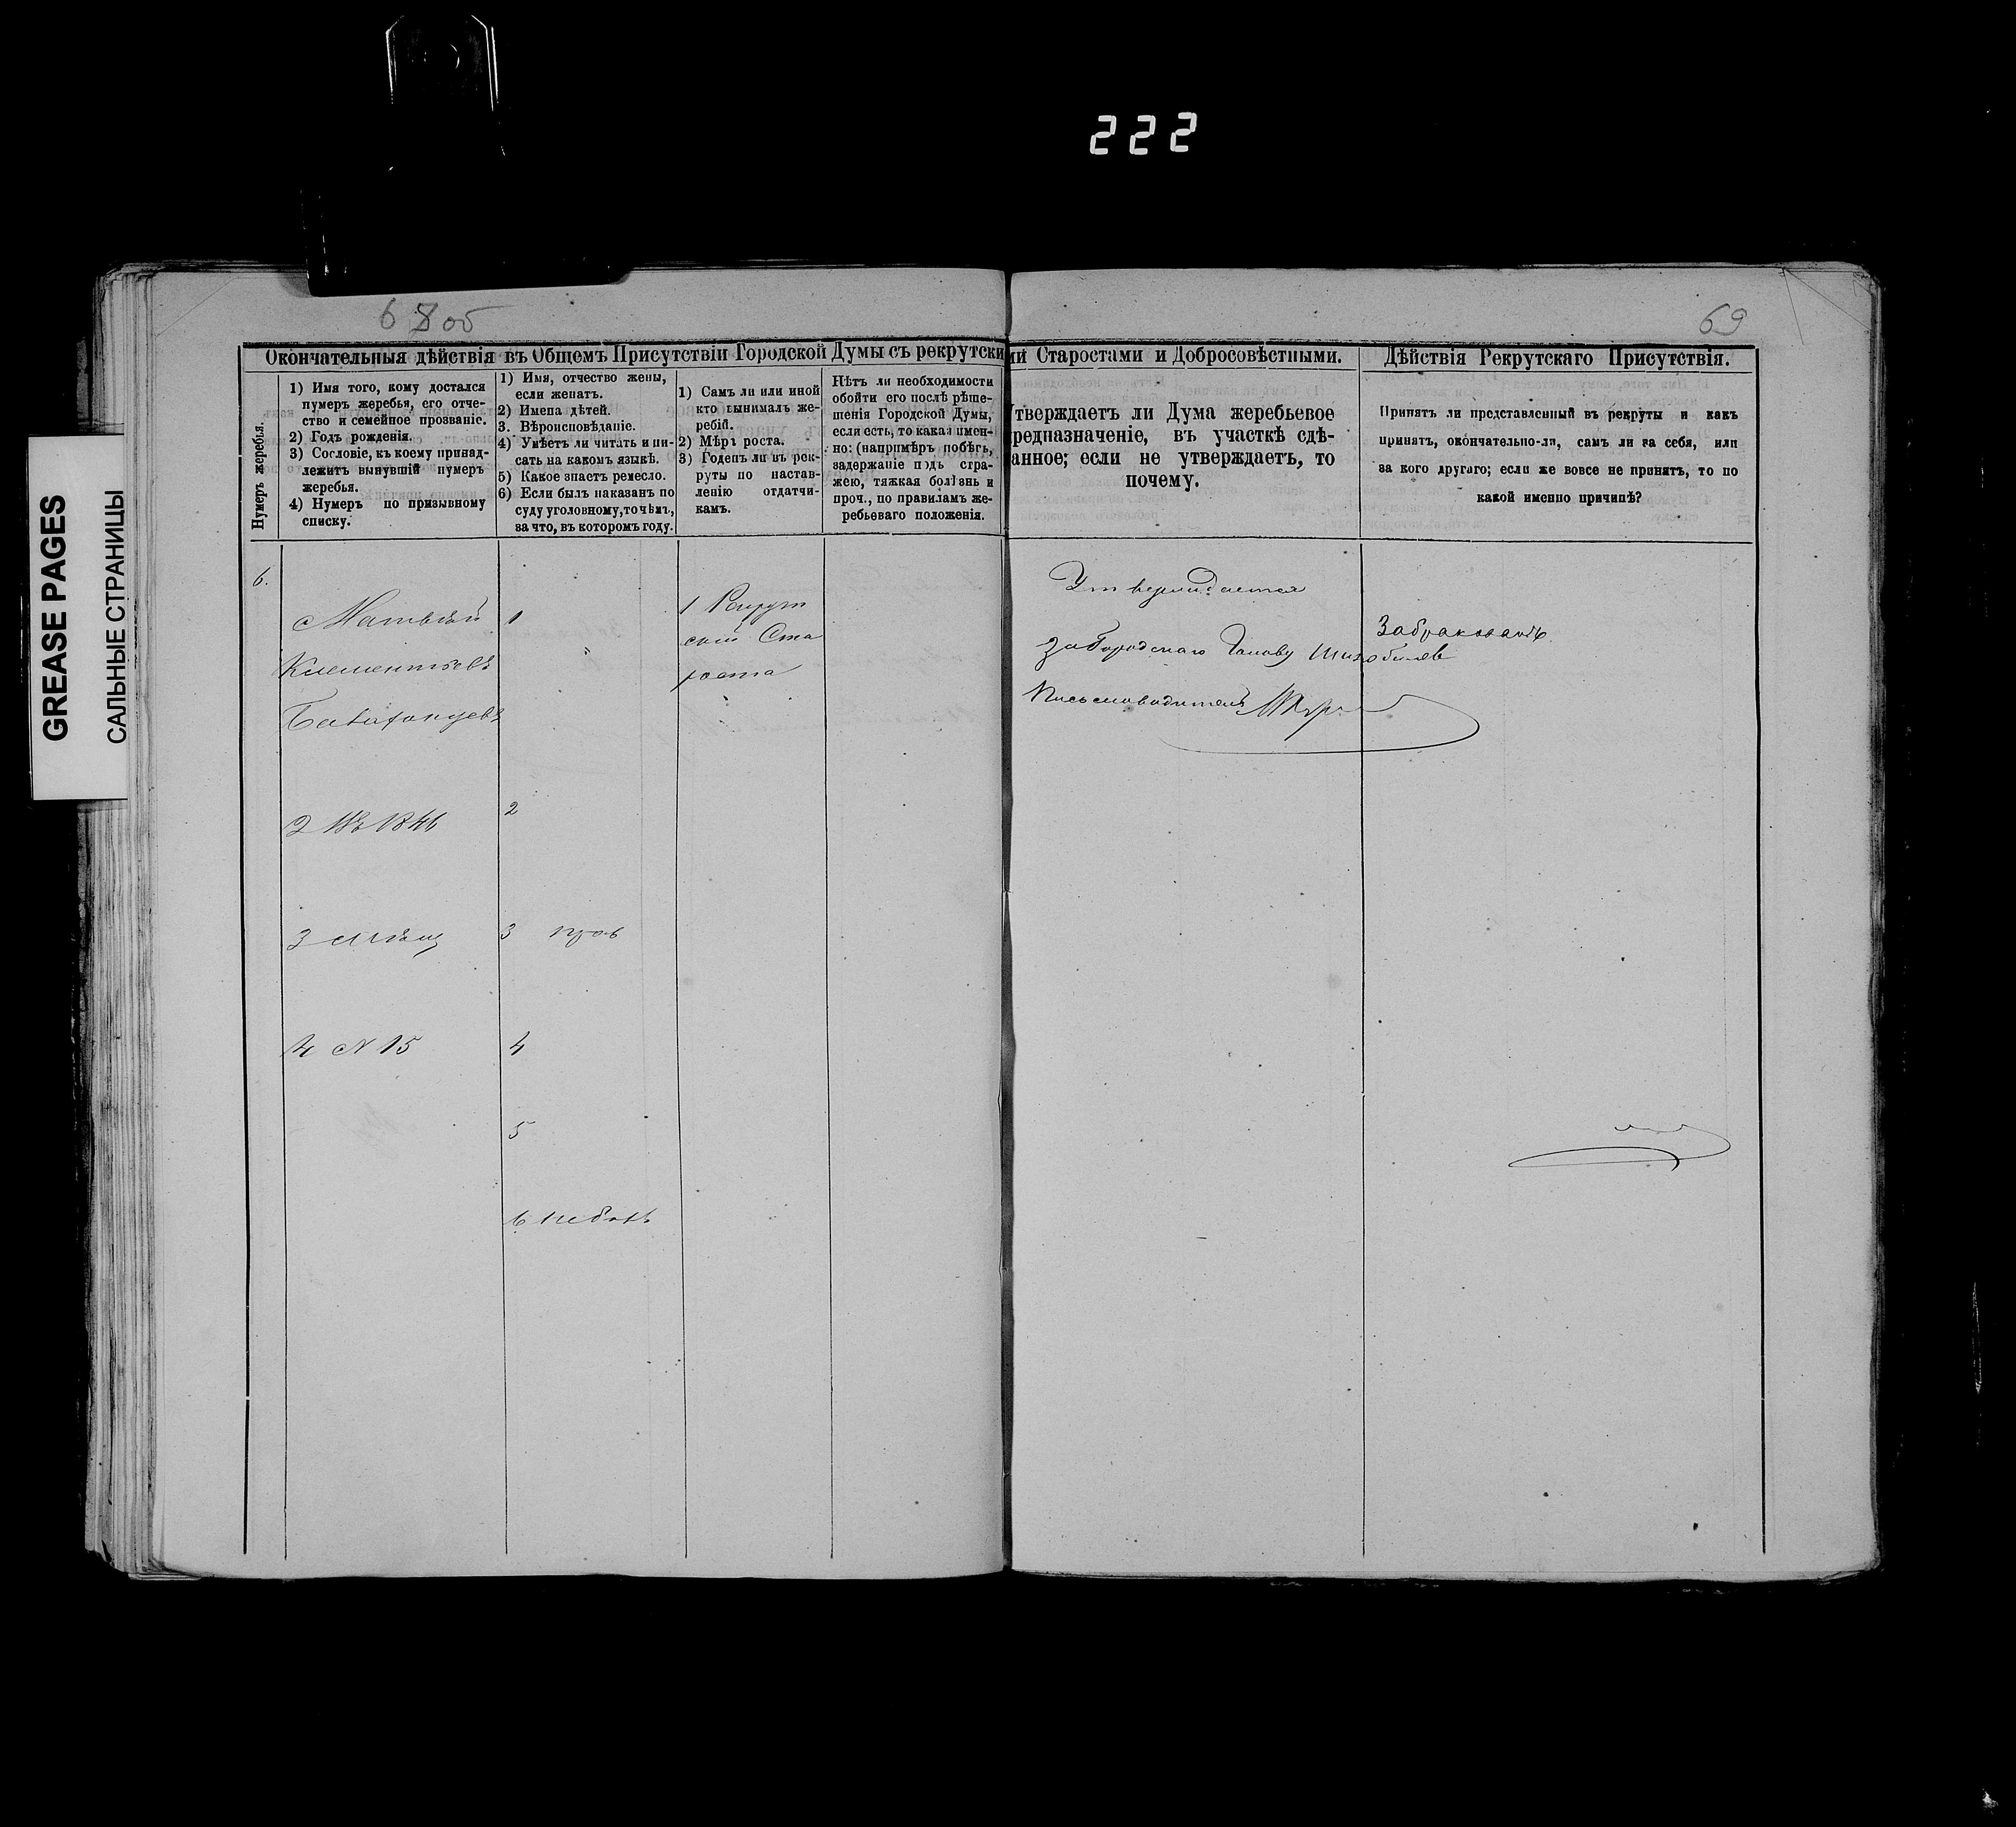 222
GREASE PAGES
САЛЬНЫЕ СТРАНИЦЫ
68 об
69
Окончательныя дѣйствія въ Общемъ Присутствіи Городской Думы съ рекрутскими Старостами и Добросовѣстными.
Дѣйствія Рекрутскаго Присутствія.
Нумеръ жеребья.
1) Имя того, кому достался
нумеръ жеребья, его отче-
ство и семейное прозваніе.
2) Годъ рожденія.
3) Сословіе, къ коему принад-
лежитъ вынувшій нумеръ
жеребья.
4) Нумеръ по призывному
списку.
1) Имя, отчество жены,
если женатъ.
2) Имена дѣтей.
3. Вѣроисповѣданіе.
4) Умѣетъ ли читать и пи-
сать на какомъ языкѣ.
5) Какое знаетъ ремесло.
6) Если былъ наказанъ по
суду уголовному, то чѣмъ,
за что, въ которомъ году.
1) Самъ ли или иной
кто вынималъ же-
ребій.
2) Мѣръ роста.
3) Годенъ ли въ рек-
руты по настав-
ленію отдатчи-
камъ.
Нѣтъ ли необходимости
обойти его послѣ рѣше-
шенія Городской Думы,
если есть, то какая имен-
но: (напримѣръ побѣгъ,
задержаніе подъ стра-
жею, тяжкая болѣзнь и
проч., по правиламъ же-
ребьеваго положенія.
Утверждаетъ ли Дума жеребьевое
предназначеніе, въ участкѣ сдѣ-
ланное; если не утверждаетъ, то
почему.
Принятъ ли представленный въ рекруты и какъ
принятъ, окончательно-ли, самъ ли за себя, или
за кого другаго; если же вовсе не принятъ, то по
какой именно причинѣ?
6.
Матвѣй
Клементьевъ
2 1846
3 Мѣщ
4 N 15
1
2
3 прав
4
5
6 не былъ
1 Рекрут
ский Ста
роста
Утверждается
За Городскаго Голову
Письмоводитель
Забракованъ